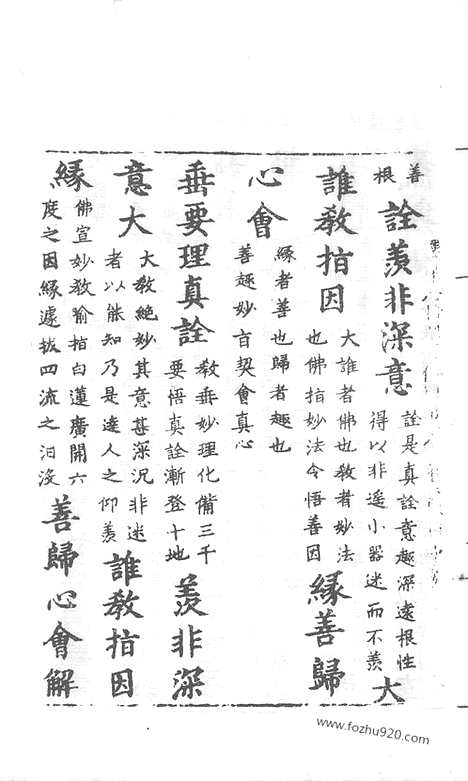 善
根
詮羨非深意
詮是真詮意趣深遠根性
得以非遥小器迷而不羨
大
誰教指因
大誰者佛也教者妙法
也佛指妙法令悟善因
緣善歸
心會
緣者善也歸者趣也
善趣妙首契會真心
垂要理真詮
教垂妙理化備三千
要悟真詮漸登十地
羨非深
意大
大教絶妙其意甚深况非迷
者以能知乃是達人之仰羨
誰教指因
緣
佛宣妙教喻指白蓮廣開六
度之因緣遽拔四流之汩没
善歸心會解
www.fozhu920.com